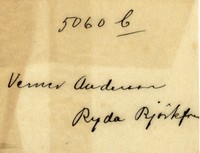 5060 C
Verner Anderson
Ryda Björkfors